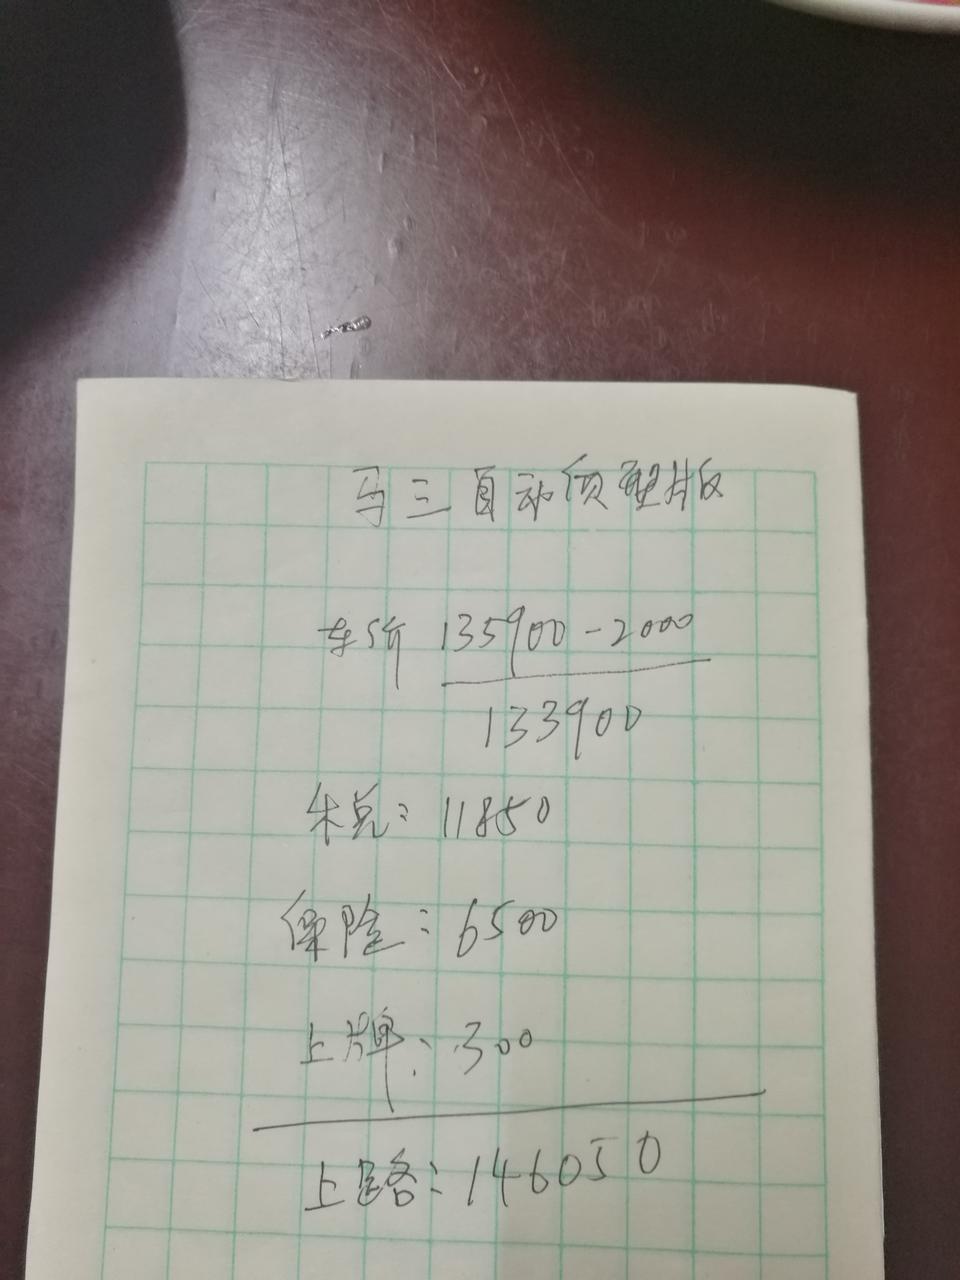 马三自动质型版
车价 135900-2000
133900
失兑: 11850
保险: 6500
上牌: 300
上路: 146050